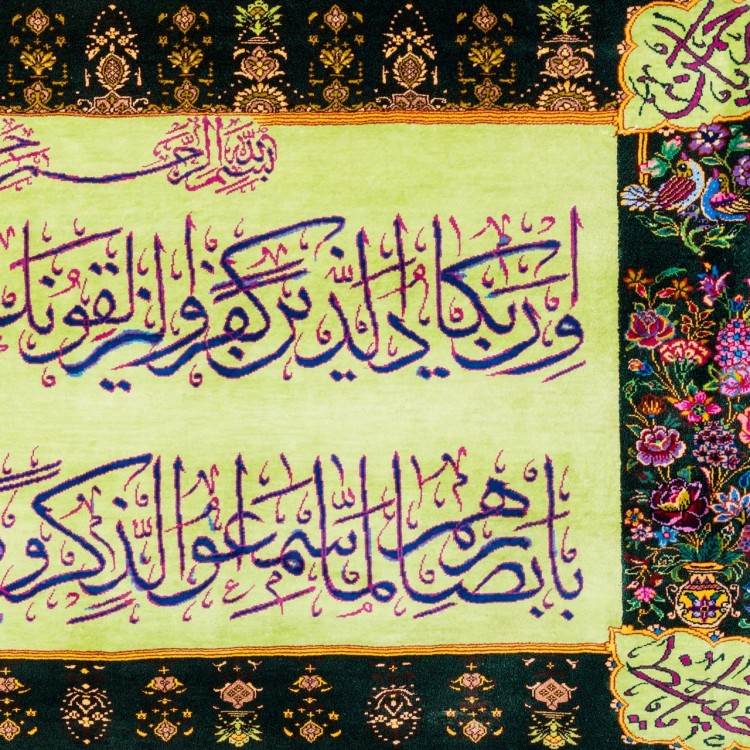 بسم الله الرحمن
وان يكاد الذين كفروا ليزلقونك
بابصارهم لما سمعوا الذكر و